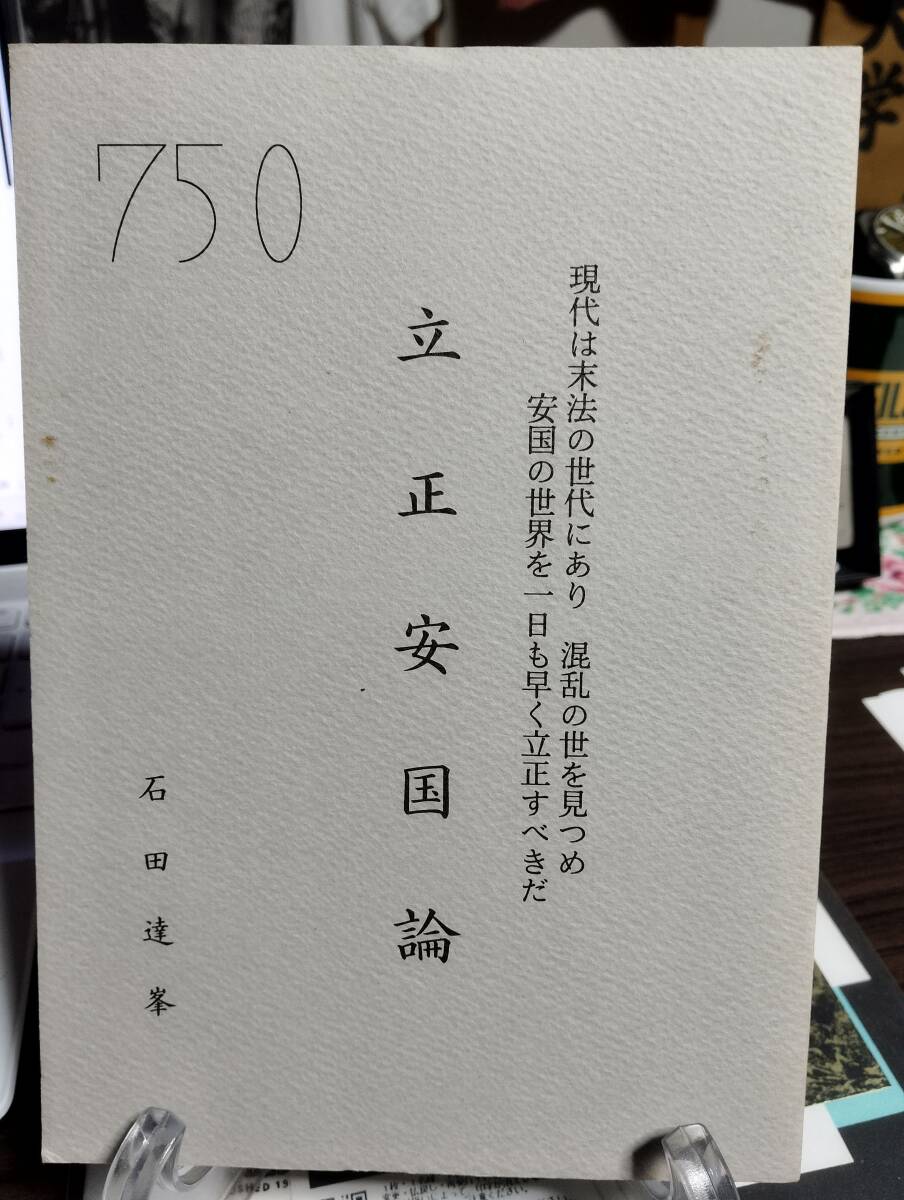 750
現代は末法の世代にあり　混乱の世を見つめ
安国の世界を一日も早く立正すべきだ
立正安国論
石田達峯
学